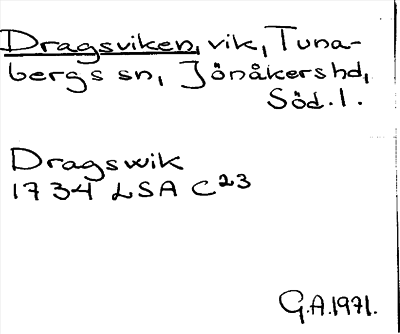 Dragsviken, vik, Tuna-
bergs sn, Jönåkers hd,
Söd. l.
Dragswik
1734 LSA C23
G.A. 1971.